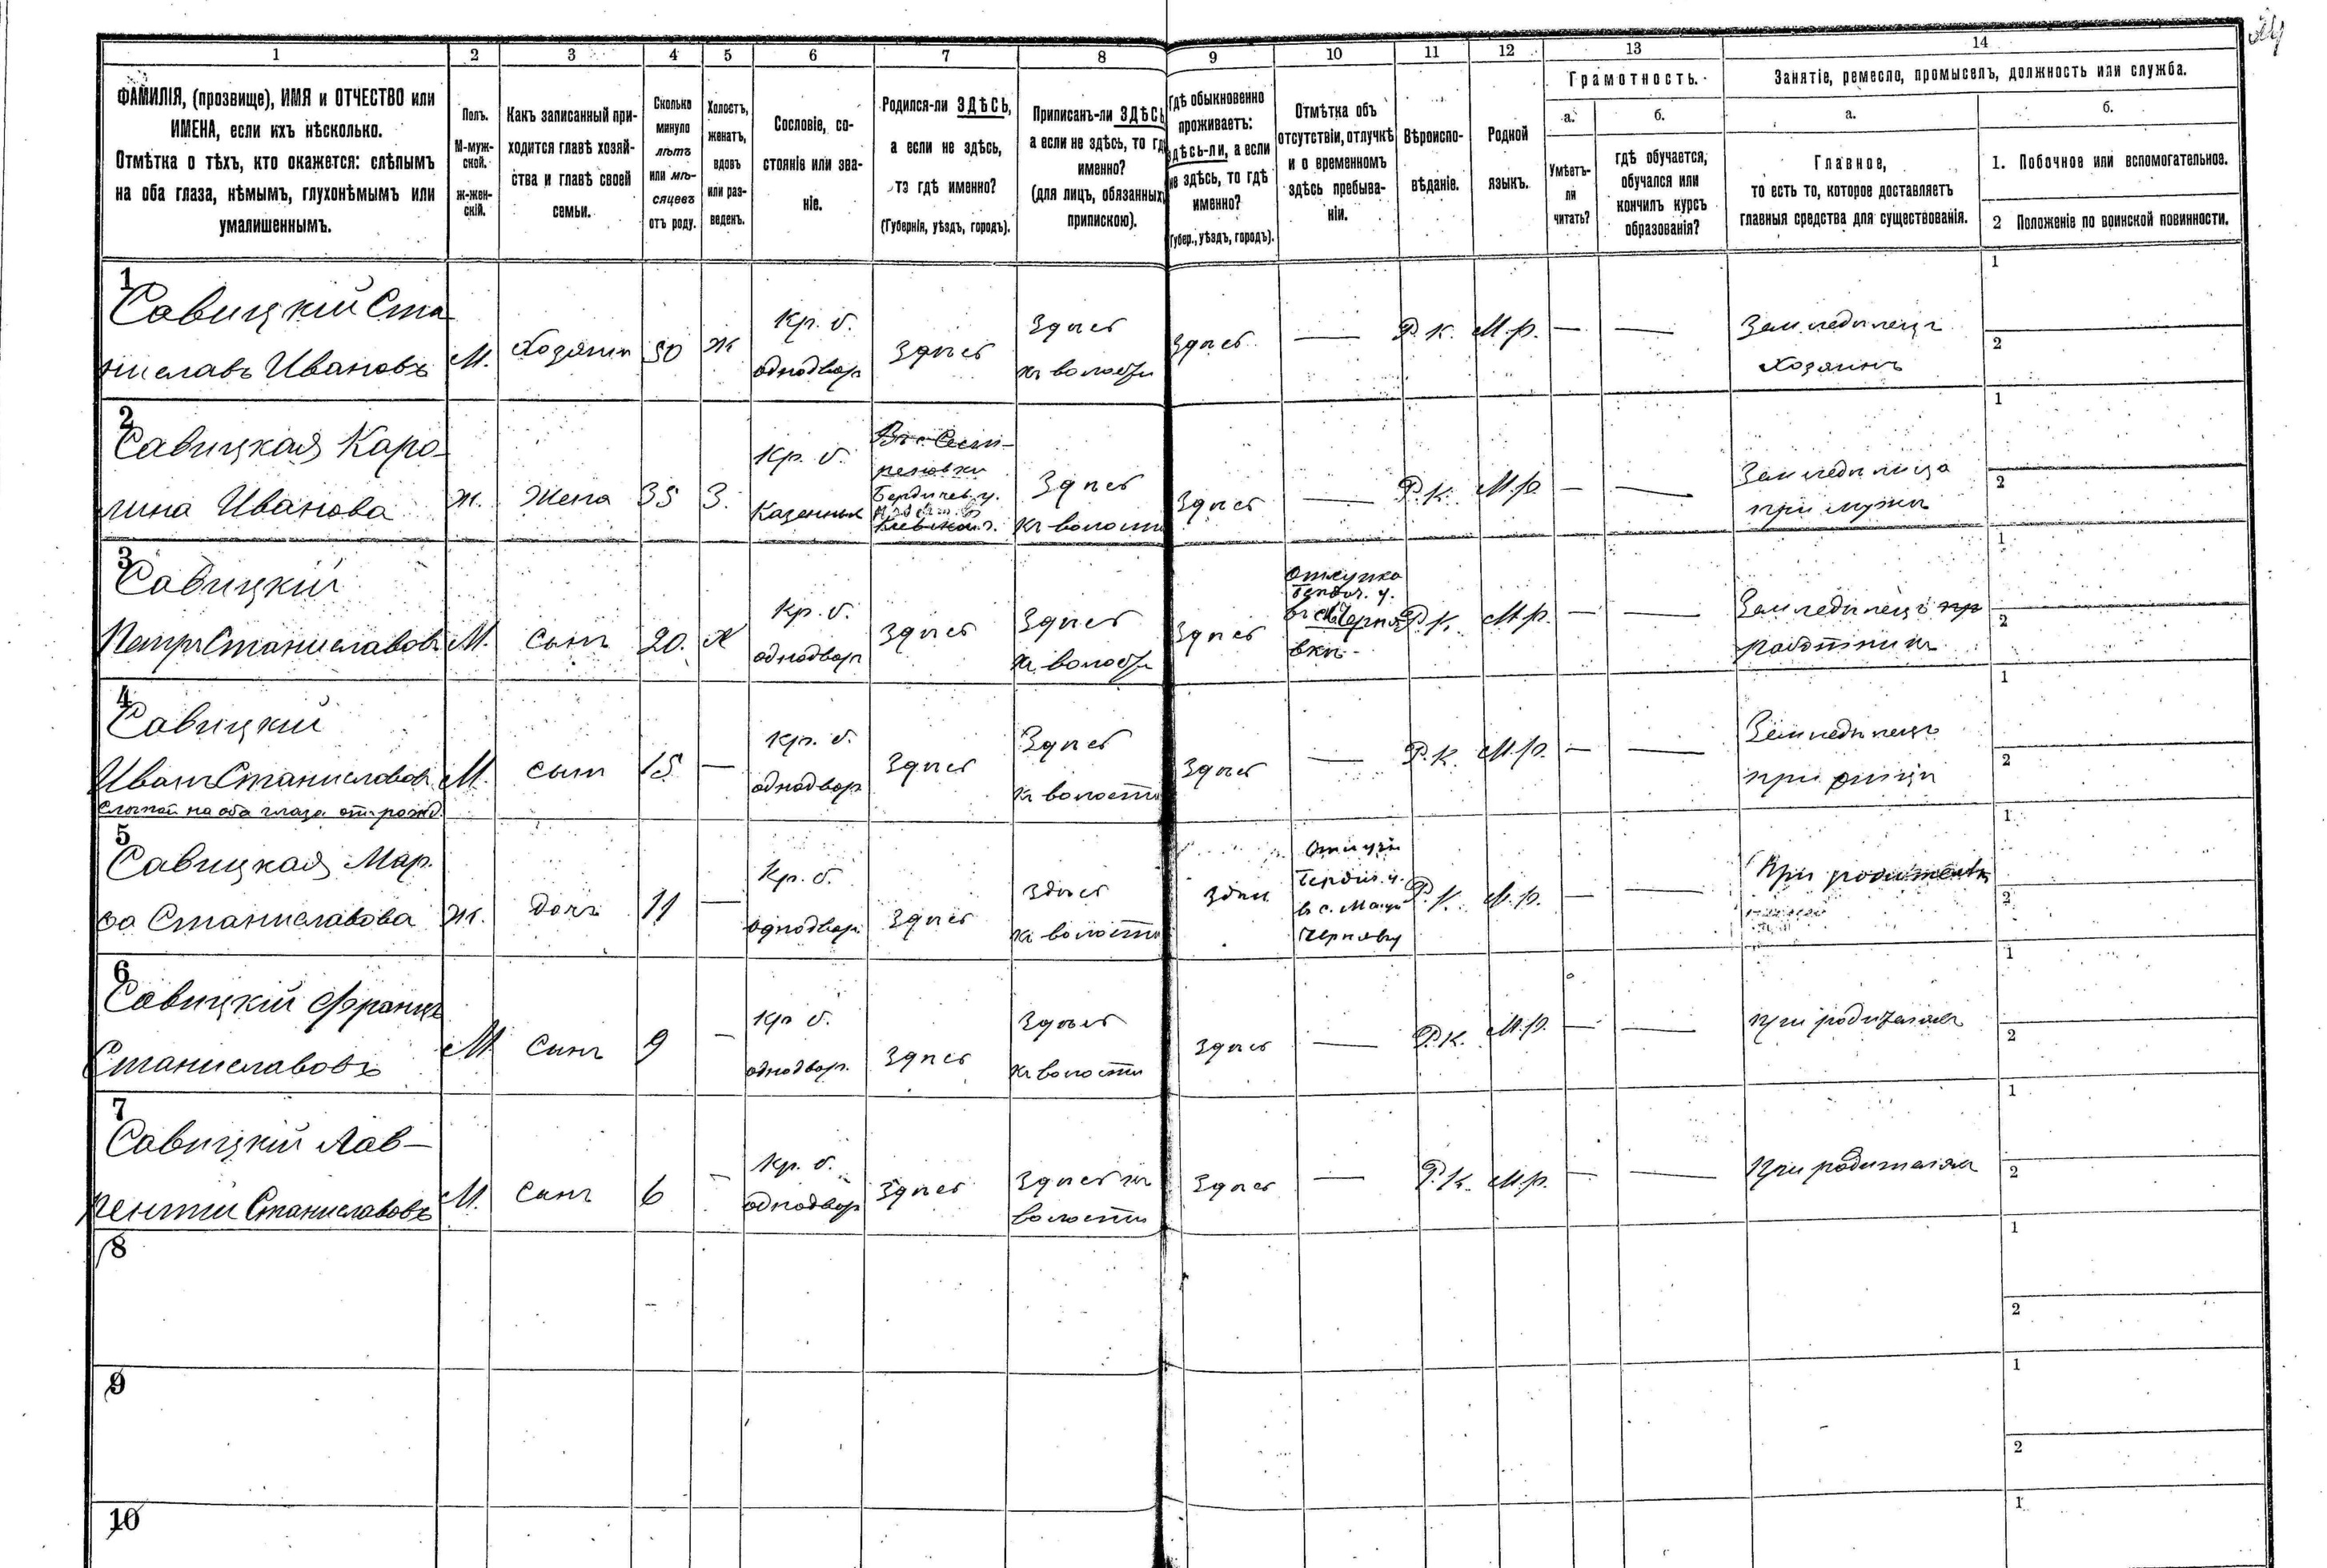 24
1 2 3 4 5 6 7 8 9 10 11 12 13 14
ФАМИЛІЯ, (прозвище), ИМЯ и ОТЧЕСТВО или
ИМЕНА, если ихъ нѣсколько.
Отмѣтка о тѣхъ, кто окажется: слѣпымъ
на оба глаза, нѣмымъ, глухонѣмымъ или
умалишеннымъ.
Полъ.
М-муж-
ской.
ж-жен-
скій.
Какъ записанный при-
ходится главѣ хозяй-
ства и главѣ своей
семьи.
Сколько
минуло
лѣтъ
или мѣ-
сяцевъ
отъ роду.
Холостъ,
женатъ,
вдовъ
или раз-
веденъ.
Сословіе, со-
стояніе или зва-
ніе.
Родился-ли ЗДѢСЬ,
а если не здѣсь,
то гдѣ именно?
(Губернія, уѣздъ, городъ).
Приписанъ-ли ЗДѢСЬ
а если не здѣсь, то гд
именно?
(для лицъ, обязанныхъ
припискою).
Гдѣ обыкновенно
проживаетъ:
здѣсь-ли, а если
не здѣсь, то гдѣ
именно?
Губер., уѣздъ, городъ).
Отмѣтка объ
отсутствіи, отлучкѣ
и о временномъ
здѣсь пребыва-
ніи.
Вѣроиспо-
вѣданіе.
Родной
языкъ.
Грамотность.
а.
Умѣетъ-
ли
читать?
б.
гдѣ обучается,
обучался или
кончилъ курсъ
образованія?
Занятіе, ремесло, промыселъ, должность или служба.
а.
Главное,
то есть то, которое доставляетъ
главныя средства для существованія.
б.
1. Побочное или вспомогательное.
2 Положеніе по воинской повинности.
1
Савицкій Ста
ниславъ Ивановъ
М.
Хозяинъ
50
ж
Кр. б.
однодвор
Здѣсь
Здѣсь
къ волости
Здѣсь
—
Р. К.
М.р.
—
—
Земледѣлецъ
Хозяинъ
1
2
2
Савицкая Каро-
лина Иванова
ж.
Жена
35
З.
Кр. б.
Казенных
Бердичев. у.
Кіевской г.
Здѣсь
къ волости
Здѣсь
—
Р. К.
М.р.
—
—
Земледѣлица
при мужѣ
1
2
3
Савицкій
Петръ Станиславовъ
М.
Сынъ
20.
Х
Кр. б.
однодвор
Здѣсь
Здѣсь
къ волости
Здѣсь
Отлучка
Бердич. у.
Р. К.
М.р.
—
—
Земледѣлецъ
работникъ
1
2
4
Савицкій
Иванъ Станиславовъ
Слѣпой на оба глаза отъ рожд.
М.
Сынъ
15
—
Кр. б.
однодвор
Здѣсь
Здѣсь
къ волости
Здѣсь
—
Р. К.
М.р.
—
—
Земледѣлецъ
при отцѣ
1
2
5
Савицкая Мар.
Станиславова
ж.
Дочь
11
—
Кр. б.
однодвор.
Здѣсь
Здѣсь
къ волости
Здѣсь
Бердич. у.
Р. К.
М.р.
—
—
При родителяхъ
1
2
6
Савицкій Францъ
Станиславовъ
М
Сынъ
9
—
Кр б.
однодвор.
Здѣсь
Здѣсь
къ волости
Здѣсь
—
Р. К.
М.р.
—
—
при родителяхъ
1
2
7
Савицкій Лав-
рентій Станиславовъ
М.
Сынъ
6
—
Кр. б.
однодвор
Здѣсь
Здѣсь къ
волости
Здѣсь
—
Р. К.
М.р.
—
—
При родителяхъ
1
2
8
1
2
9
1
2
10
1